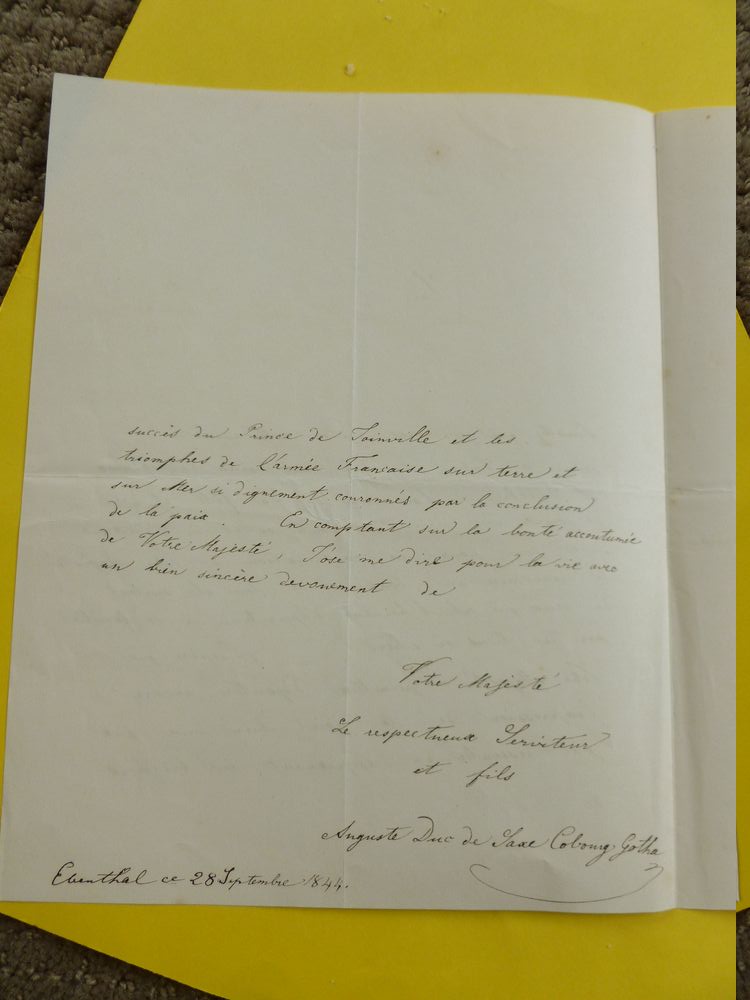 succès du Prince de Joinville et les
triomphes de l'armée Française sur terre et
sur Mer si dignement couronnés par la conclusion
de la paix. En comptant sur la bonté accoutumée
de Votre Majesté, J'ôse me dire pour la vie avec
un bien sincère devouement de
Votre Majesté
Le respectueux Serviteur
et fils
Auguste Duc de Saxe Cobourg Gotha
Ebenthal ce 28 Septembre 1844.